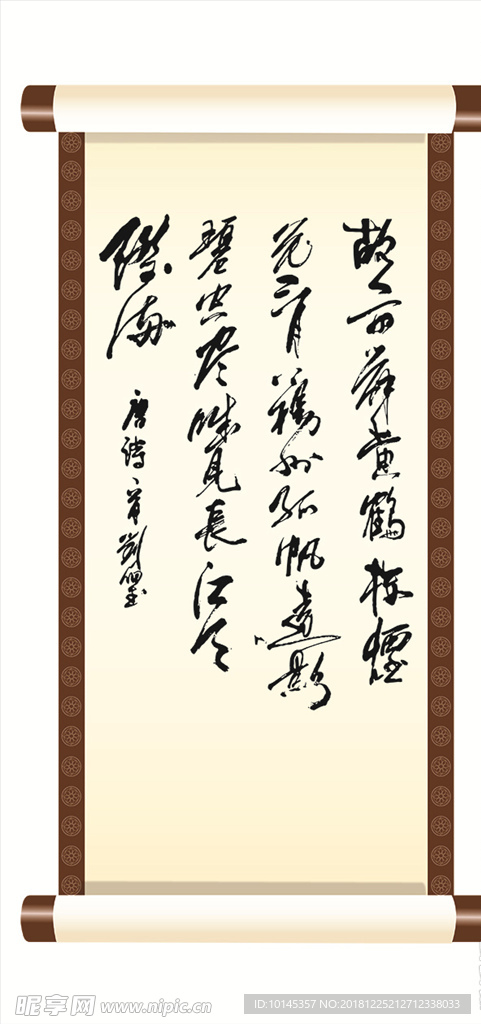 故人西辞黄鶴楼煙
花三月下揚州孤帆遠影
碧空尽唯見長江天
際流
唐詩一首
昵享网 www.nipic.cn
ID:10145357 NO:20181225212712338033